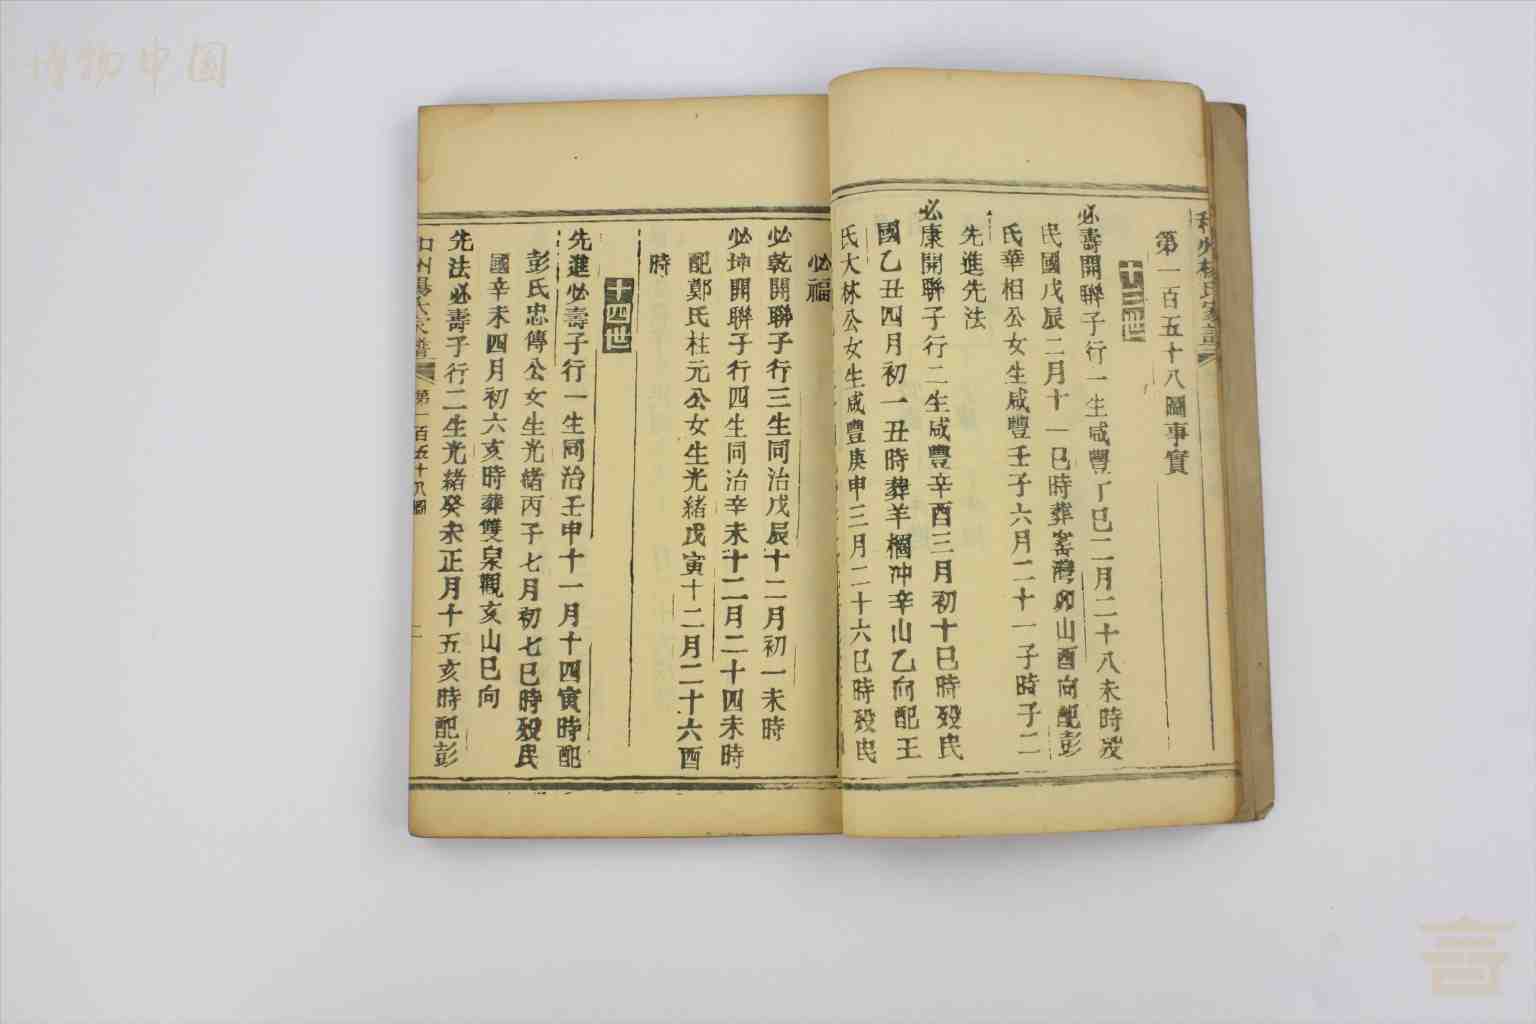 博物中国
第一百五十八圖事實
十三世
必壽開聯子行一生咸豐丁巳二月二十八未時歿
民國戊辰二月十一巳時葬窰灣卯山酉向配彭
氏華相公女生咸豐壬子六月二十一子時子二
先進先法
必康開聯子行二生咸豐辛酉三月初十巳時歿民
國乙丑四月初一丑時葬羊欄冲辛山乙向配王
氏大林公女生咸豐庚申三月二十六巳時歿民
必福
必乾開聯子行三生同治戊辰十二月初一未時
必坤開聯子行四生同治辛未十二月二十四未時
配鄭氏柱元公女生光緒戊寅十二月二十六酉
時
十四世
先進必壽子行一生同治壬申十一月十四寅時配
彭氏忠傳公女生光緒丙子七月初七巳時歿民
國辛未四月初六亥時葬雙泉觀亥山巳向
先法必壽子行二生光緒癸未正月十五亥時配彭
第一百五十八圖